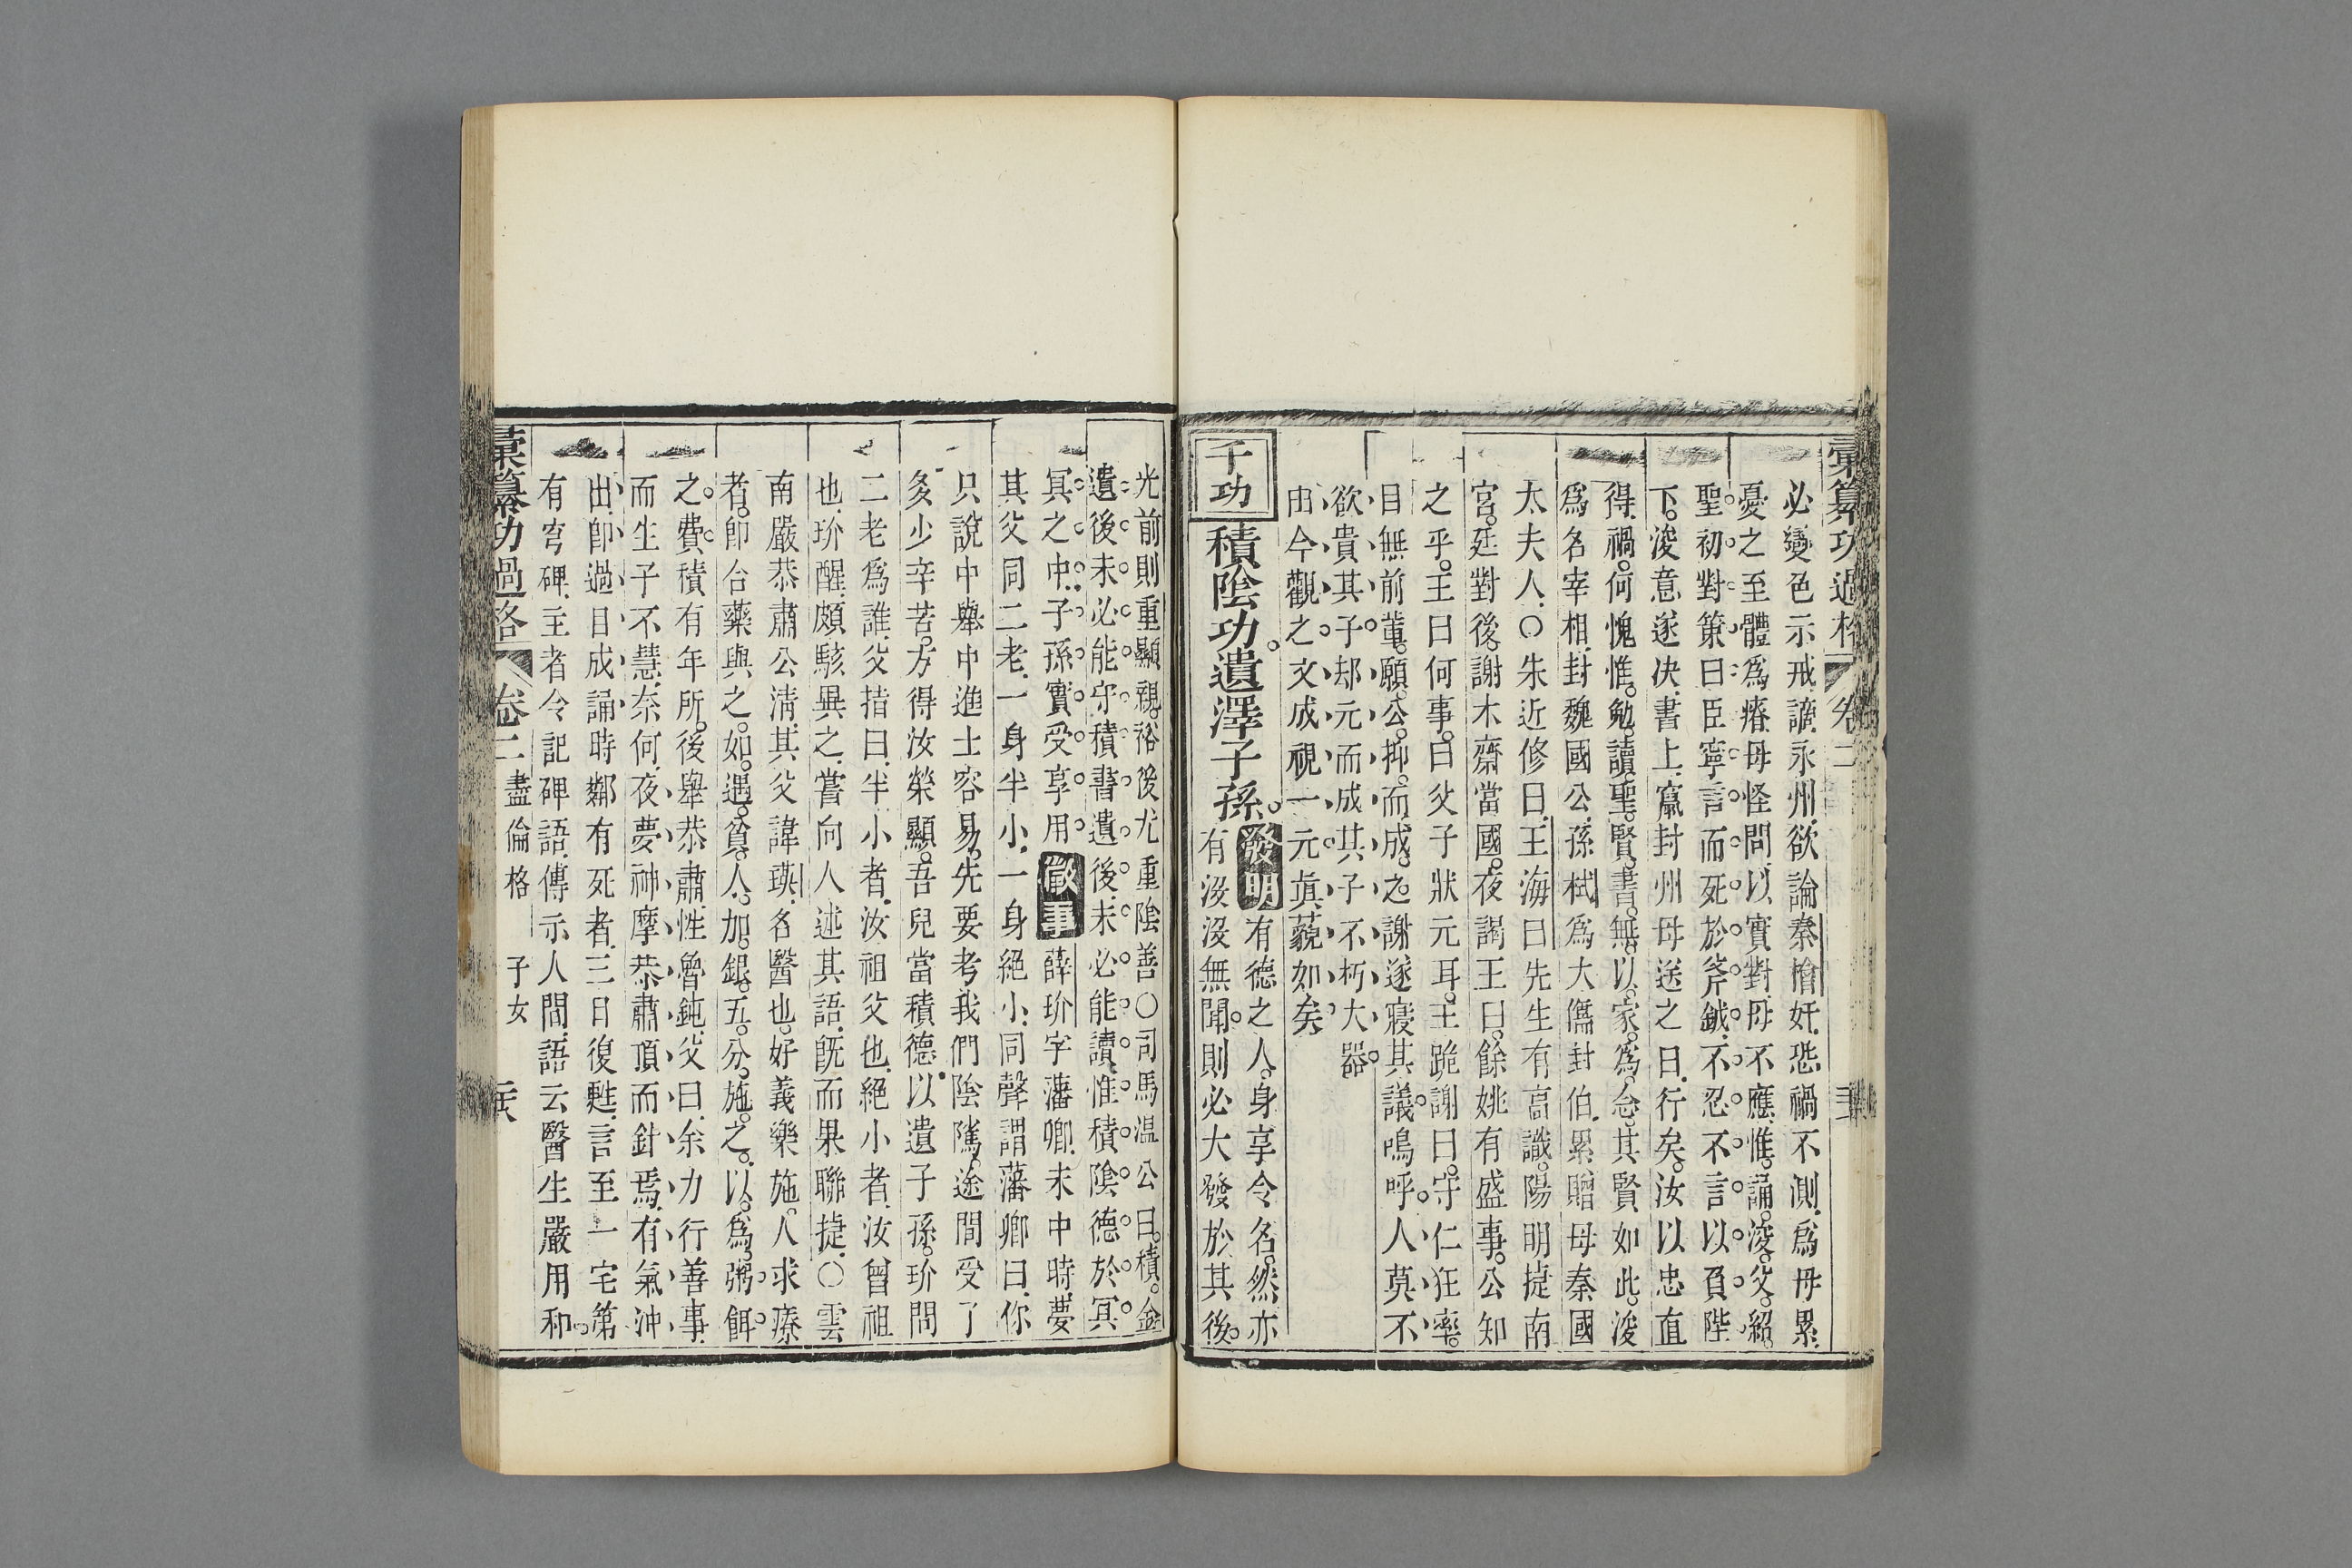 彙纂功過格 卷二
必變色示戒謫永州欲論秦檜奸恐禍不測為母累
憂之至體為瘠母怪問以實對母不應惟誦浚父紹
聖初對策曰臣寧言而死於斧鉞不忍不言以負陛
下浚意遂决書上竄封州母送之曰行矣汝以忠直
得禍何愧惟勉讀聖賢書無以家為念其賢如此浚
為名宰相封魏國公孫栻為大儒封伯累贈母秦國
太夫人○朱近修曰王海日先生有高識陽明捷南
宮廷對後謝木齋當國夜謁王曰餘姚有盛事公知
之乎王曰何事曰父子狀元耳王跪謝曰守仁狂率
目無前輩願公抑而成之謝遂寢其議嗚呼人莫不
欲貴其子却元而成其子不朽大器
由今觀之文成視一元眞藐如矣
千功
積陰功遺澤子孫 發明 有德之人身享令名然亦
有沒沒無聞則必大發於其後
光前則重顯親裕後尤重陰善○司馬温公曰積金
遺後未必能守積書遺後未必能讀惟積陰德於冥
冥之中子孫實受享用 徵事 薛玠字藩卿未中時夢
其父同二老一身半小一身絕小同聲謂藩卿曰你
只說中舉中進士容易先要考我們陰隲途間受了
多少辛苦方得汝榮顯吾兒當積德以遺子孫玠問
二老為誰父指曰半小者汝祖父也絕小者汝曾祖
也玠醒頗駭異之嘗向人述其語旣而果聯捷○雲
南嚴恭肅公淸其父諱瑛名醫也好義樂施人求療
者卽合藥與之如遇貧人加銀五分施之以為粥餌
之費積有年所後舉恭肅性魯鈍父曰余力行善事
而生子不慧奈何夜夢神摩恭肅頂而針焉有氣沖
出卽過目成誦時鄰有死者三日復甦言至一宅第
有穹碑主者令記碑語傳示人間語云醫生嚴用和
彙纂功過格 卷二 盡倫格 子女